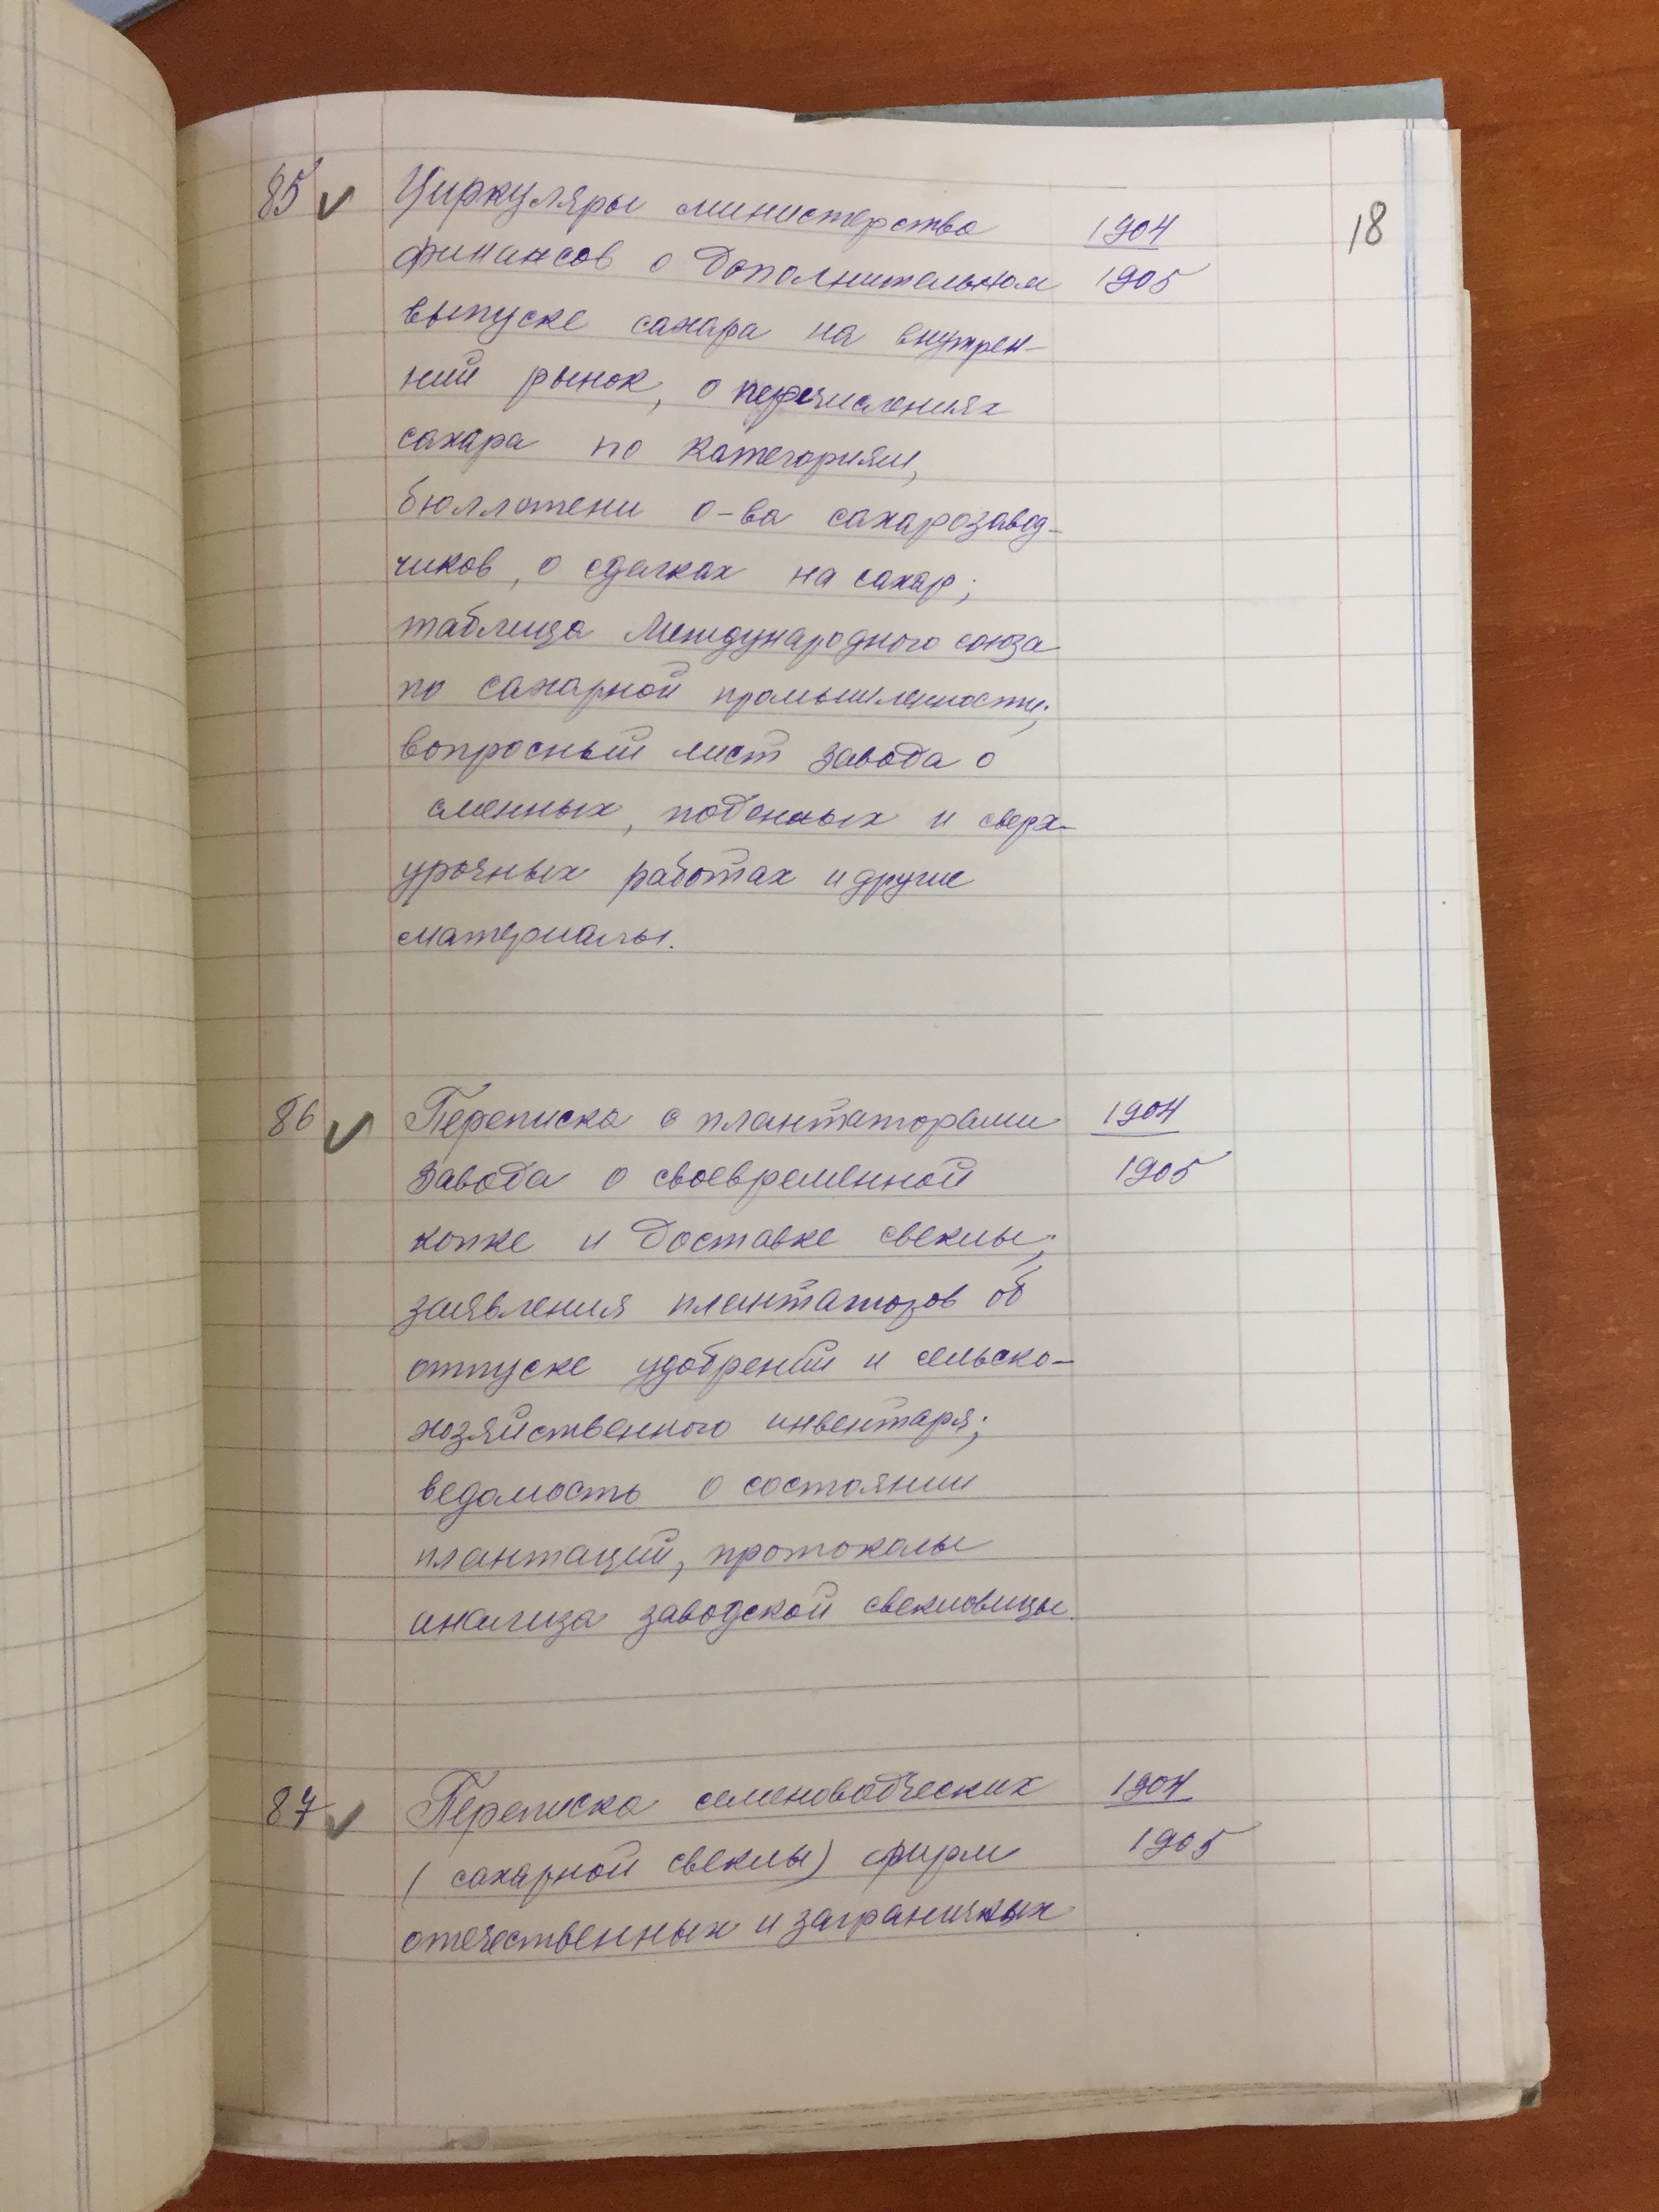 18
85 ✓ Циркуляры министерства 1904
финансов о дополнительном 1905
выпуске сахара на внутрен-
ний рынок, о перечислениях
сахара по категориям,
бюллетени о-ва сахарозавод-
чиков, о сделках на сахар;
таблица Международного союза
по сахарной промышленности;
вопросный лист завода о
сменных, поденных и сверх-
урочных работах и другие
материалы.
86 ✓ Переписка с плантаторами 1904
завода о своевременной 1905
копке и доставке свеклы;
заявления плантаторов об
отпуске удобрений и сельско-
хозяйственного инвентаря;
ведомость о состоянии
плантаций, протоколы
анализа заводской свекловицы.
87 ✓ Переписка семеноводческих 1904
(сахарной свеклы) фирм 1905
отечественных и заграничных